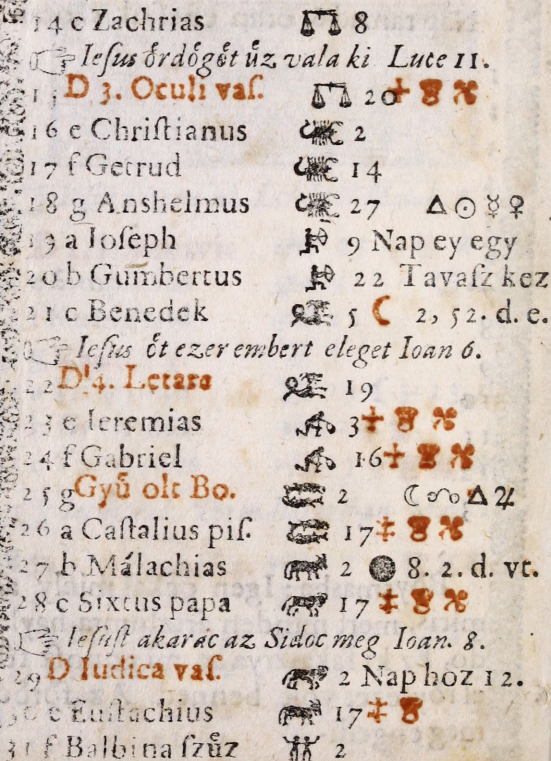 14 c Zachrias 8
Ieſus ŏrdŏgȯ̈t ůz vala ki Luce 11.
D 3. Oculi vaſ. 20
16 e Chriſtianus 2
17 f Getrud 14
18 g Anshelmus 27 △☉☿♀
19 a Ioſeph 9 Nap ey egy
20 b Gumbertus 22 Tavaſz kez
21 c Benedek 5 ☾ 2, 52. d. e.
Ieſus ŏt ezer embert eleget Ioan 6.
22 D 4. Letare 19
23 e Ieremias 3
24 f Gabriel 16
25 g Gyů olt Bo. 2 ☾☍△♃
26 a Caſtalius piſ. 17
27 b Málachias 2 8. 2. d. vt.
28 c Sixtus papa 17
Ieſuſt akarác az Sidoc meg Ioan. 8.
29 D Iudica vaſ. 2 Nap hoz 12.
30 e Euſtachius 17
31 f Balbina ſzůz 2